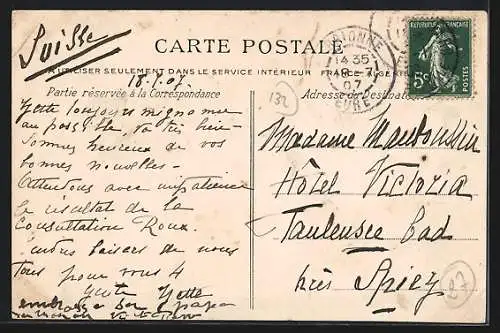 Suisse
CARTE POSTALE
A UTILISER SEULEMENT DANS LE SERVICE INTÉRIEUR FRANCE ALGÉRIE
18.7.07.
Partie réservée à la Correspondance
Adresse du Destinataire
132
14 35
07
EURE
RÉPUBLIQUE FRANÇAISE
5c
POSTES
Yette toujours mignonne
au possible, va très bien
Sommes heureux de vos
bonnes nouvelles.
Attendons avec impatience
le résultat de la
Consultation Roux.
Tendres baisers de nous
tous pour vous 4
Yette
embrasse bon papa
Madame
Hôtel Victoria
Taulensee bad
près Spiez